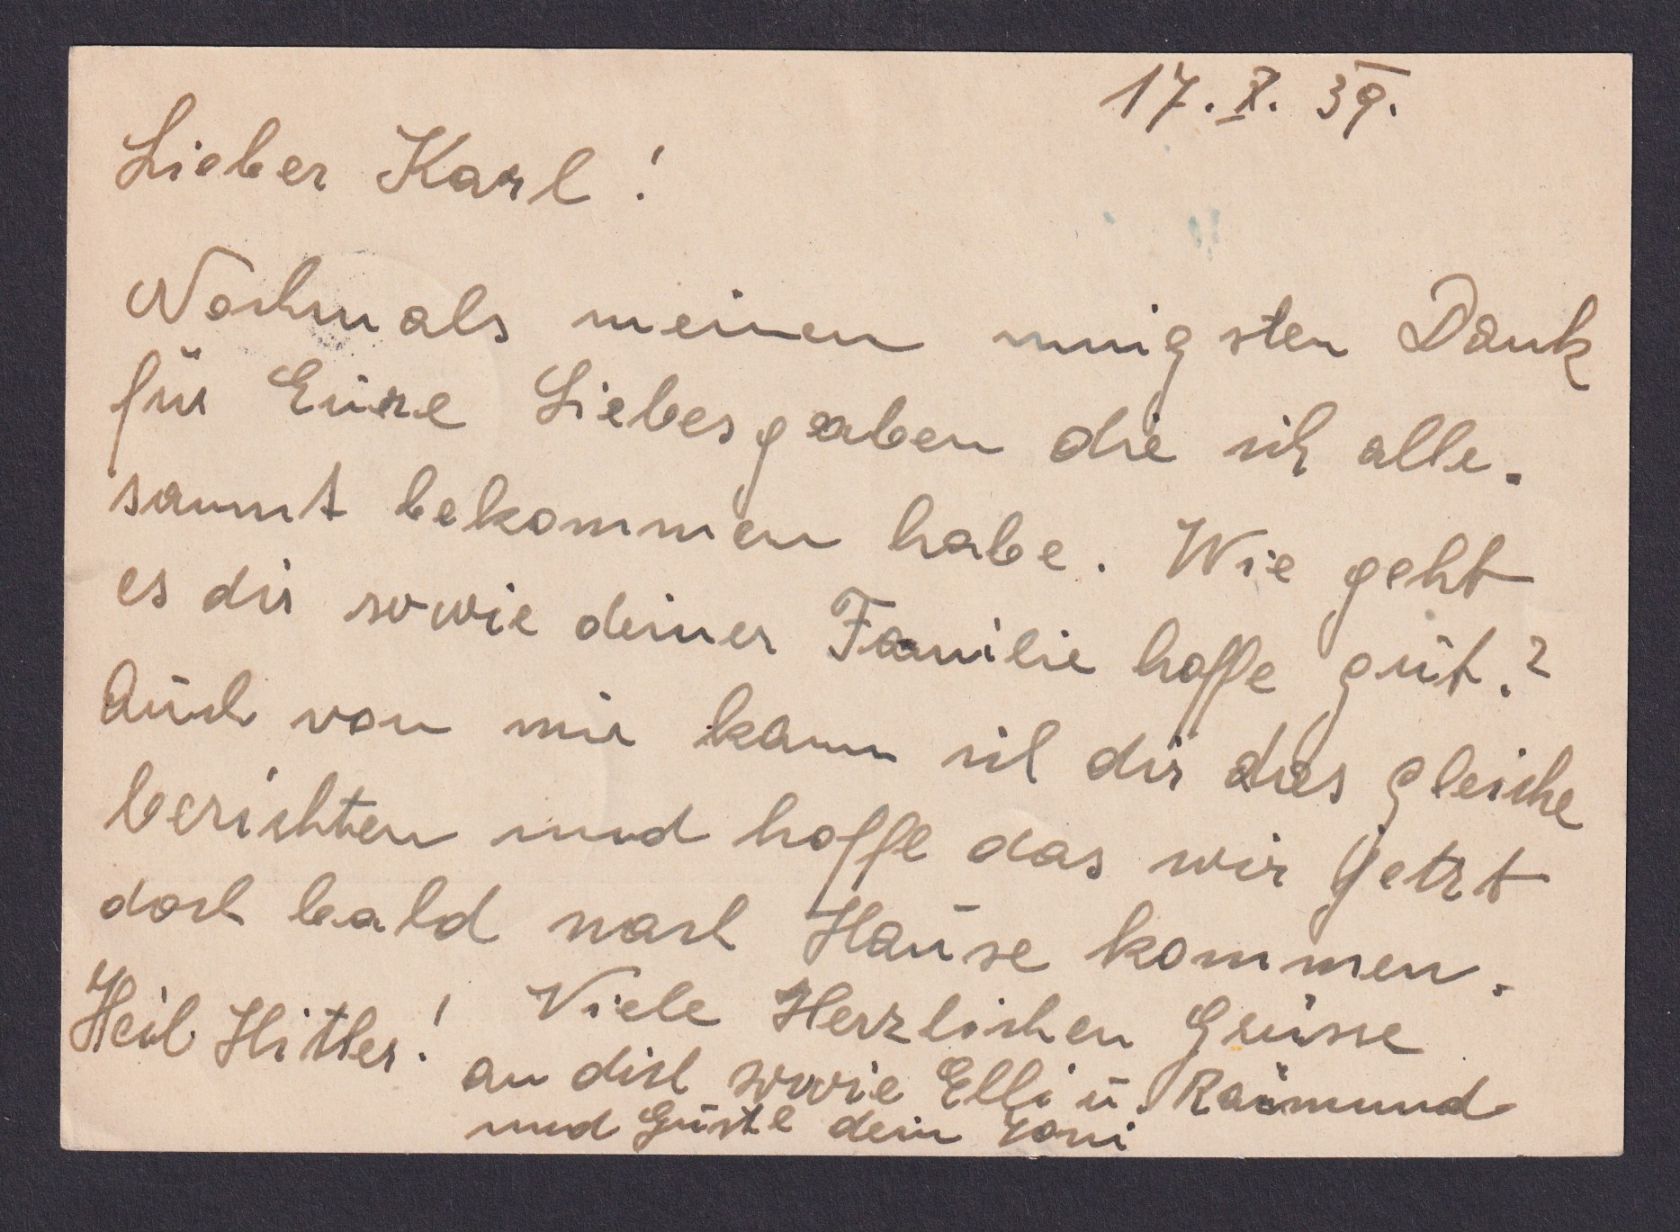 17. X. 39.
Lieber Karl!
Nochmals meinen innigsten Dank
für Eure Liebesgaben die ich alle-
samt bekommen habe. Wie geht
es dir sowie deiner Familie hoffe gut.?
Auch von mir kann ich dir das gleiche
berichten und hoffe das wir jetzt
doch bald nach Hause kommen.
Heil Hitler! Viele Herzlichen Grüsse
an dich sowie Elli u. Raimund
und Gustl dein Toni